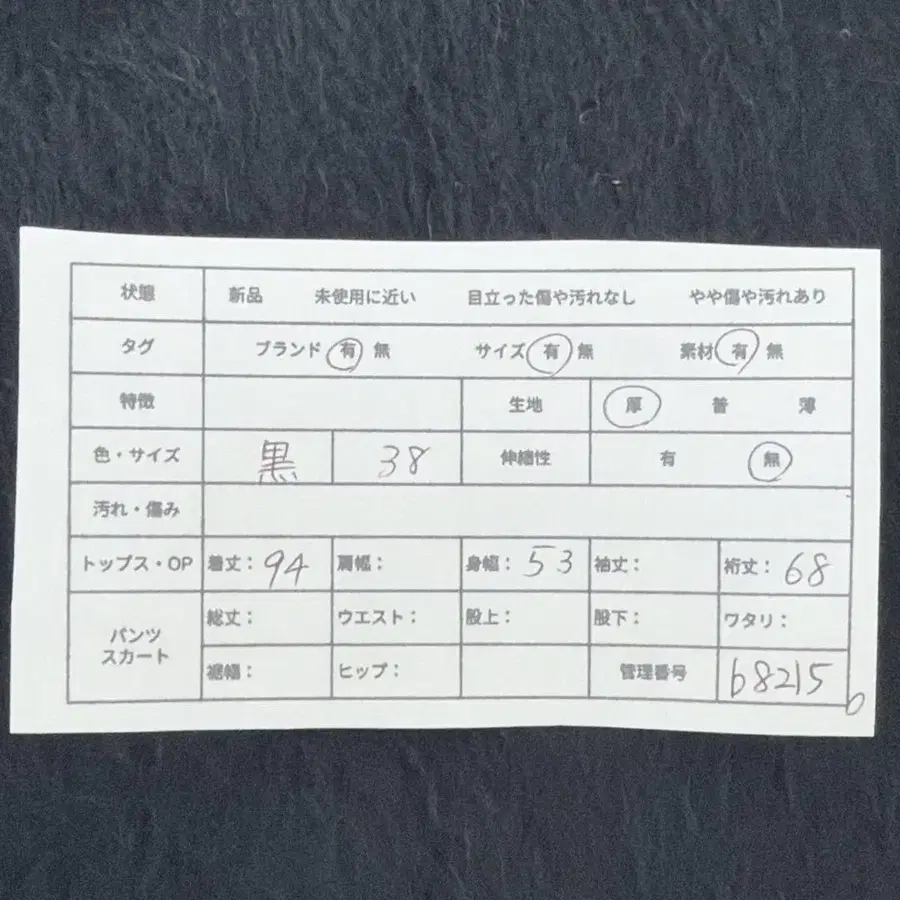 状態 新品 未使用に近い 目立った傷や汚れなし やや傷や汚れあり
タグ ブランド 有 無 サイズ 有 無 素材 有 無
特徴 生地 厚 普 薄
色・サイズ 黒 38 伸縮性 有 無
汚れ・傷み
トップス・OP 着丈: 94 肩幅: 身幅: 53 袖丈: 裄丈: 68
パンツ スカート 総丈: ウエスト: 股上: 股下: ワタリ:
裾幅: ヒップ: 管理番号 68215